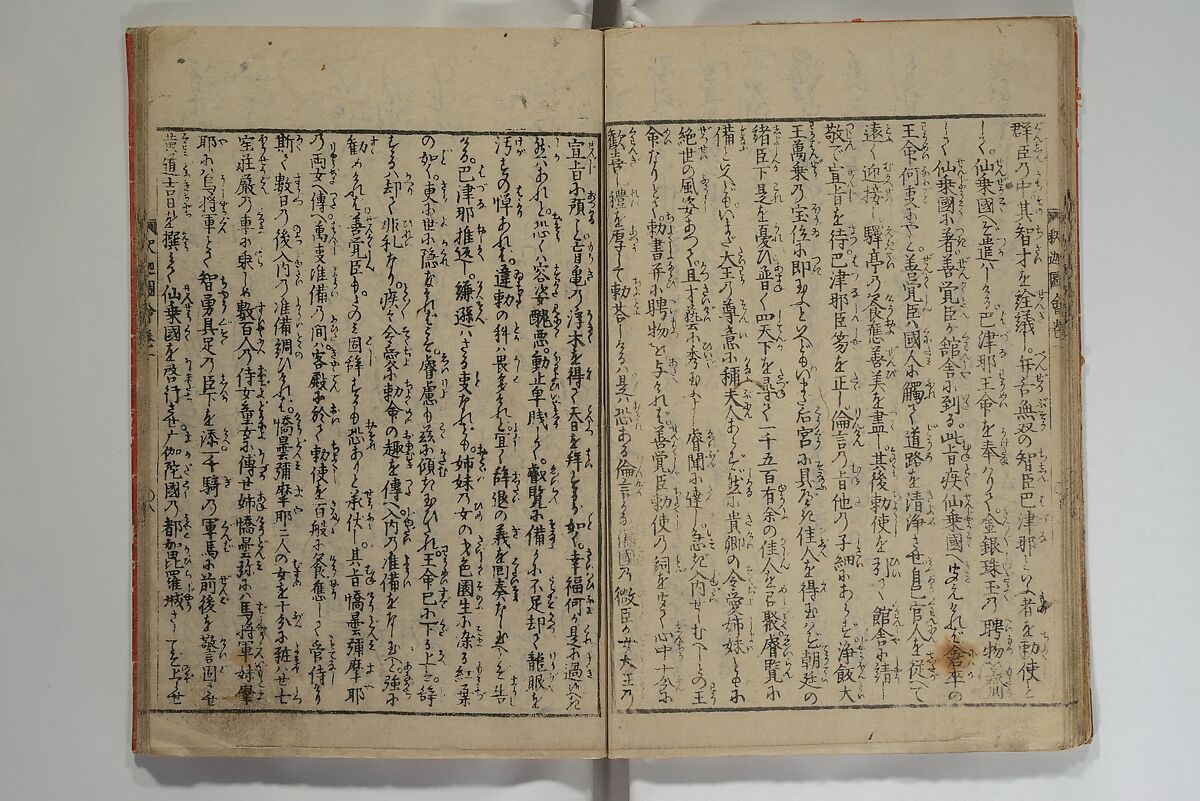 群臣の中其智才を詮議し弁舌無双の智臣巴津那といふ者を勅使と
し仙乗國へ遣はしける巴津那王命を奉りて金銀珠玉の聘物
して仙乗國に着善覚臣が舘舎に到る此旨疾仙乗國へ聞えければ
王命何事にやと善覚臣は國人に觸て道路を清浄させ自己官人を従へて
遠く迎接し驛亭の饗應善美を盡し其後勅使を引て舘舎に請し
敬で宣旨を待巴津那臣笏を正し倫言の旨他の子細にあらず浄飯大
王萬乗の宝位に即玉へどもいまだ后宮に具たる佳人を得玉はず朝廷の
緒臣下是を憂ひ普く四天下を尋て一千五百有余の佳人を召聚睿覧に
備といへどもいまだ大王の尊意に称夫人あらず然に貴卿の令愛姉妹ともに
絶世の風姿あつて且才藝に秀玉ふよし睿聞に達し急ぎ入内せしむべしとの王
命なりとて勅書并に聘物を与ければ善覚臣勅使の詞を聞て心中十分に
歓喜し禮を厚して勅答しけるは是は恐ある倫言かな偏國の微臣が女大王の
宣旨に預こと盲亀の浮木を得て天日を拝するが如し幸福何か是に過べき
然はあれど恐くは容姿醜悪動止卑賎して叡覧に備に不足却て龍眼を
汚すの悼あれば違勅の科は畏多けれど宜く辞退の義を曲奏なし玉へと告
ける巴津那推返し謙遜はさる事なれども姉妹の女の才色園生に深る紅葉
の如く東に世に隠なければこそ睿慮も茲に傾玉ひけれ王命已に下る上を辞
するは却て非礼なり疾々令愛に勅命の趣を傳へ入内の准備をなし玉へと強に
勧ければ善覚臣もさのみ固辞するも恐ありと承伏し其旨憍曇彌摩耶
の両女へ傳へ萬事准備の間は客殿に於て勅使を百般に饗應して管侍けり
斯て数日の後入内の准備調ひければ憍曇彌摩耶二人の女を十分に粧せ七
宝荘厳の車に乗しめ数百人の侍女童女に傳せ姉憍曇弥には馬将軍妹摩
耶には烏将軍とて智勇具足の臣下を添一千騎の軍馬に前後を警固させ
黄道吉日を撰んで仙乗國を啓行させ伽陀國の都加毘羅城さしてぞ上らせ
釈迦圖會巻一